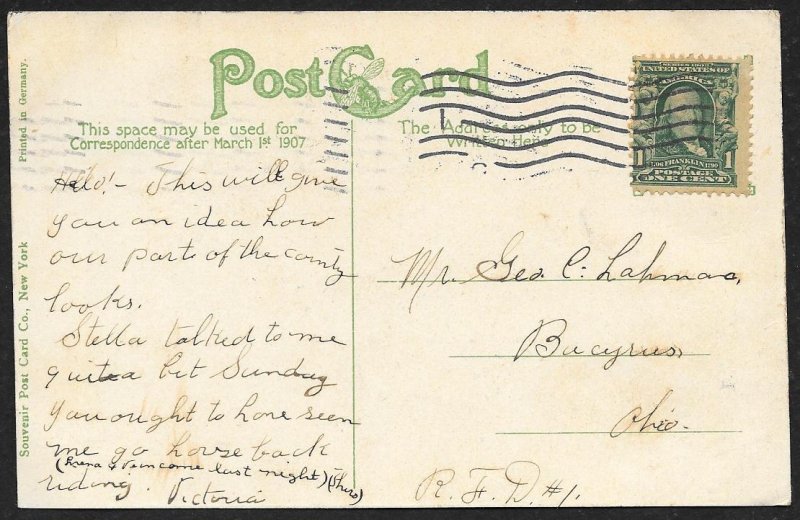 Post Card
This space may be used for
Correspondence after March 1st 1907
The Address only to be
Written Here
SERIES 1902
UNITED STATES OF
AMERICA
1706 FRANKLIN 1790
1 1
POSTAGE
ONE CENT
Printed in Germany.
Souvenir Post Card Co., New York
Hello! - This will give
you an idea how
our part of the county
looks.
Stella talked to me
quite a bit Sunday
You ought to have seen
me go horse back
come last night)
riding. Victoria
Mr. Geo. C. Lahman,
Bucyrus,
Ohio.
R. F. D. #1.